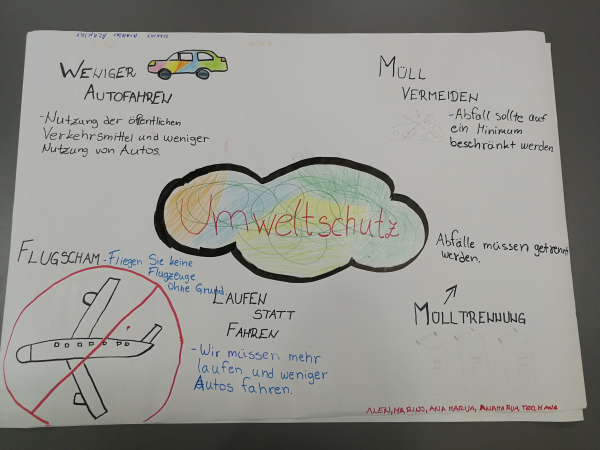 WENIGER
AUTOFAHREN
-Nutzung der öffentlichen
Verkehrsmittel und weniger
Nutzung von Autos.
MÜLL
VERMEIDEN
-Abfall sollte auf
ein Minimum
beschränkt werden
Umweltschutz
Abfälle müssen getrennt
werden.
MÜLLTRENNUNG
FLUGSCHAM -Fliegen Sie keine
Flugzeuge
ohne Grund
LAUFEN
STATT
FAHREN
-Wir müssen mehr
laufen und weniger
Autos fahren.
ALEN, MARINO, ANA MARIJA, ANAMARIJA, TEO, HANA